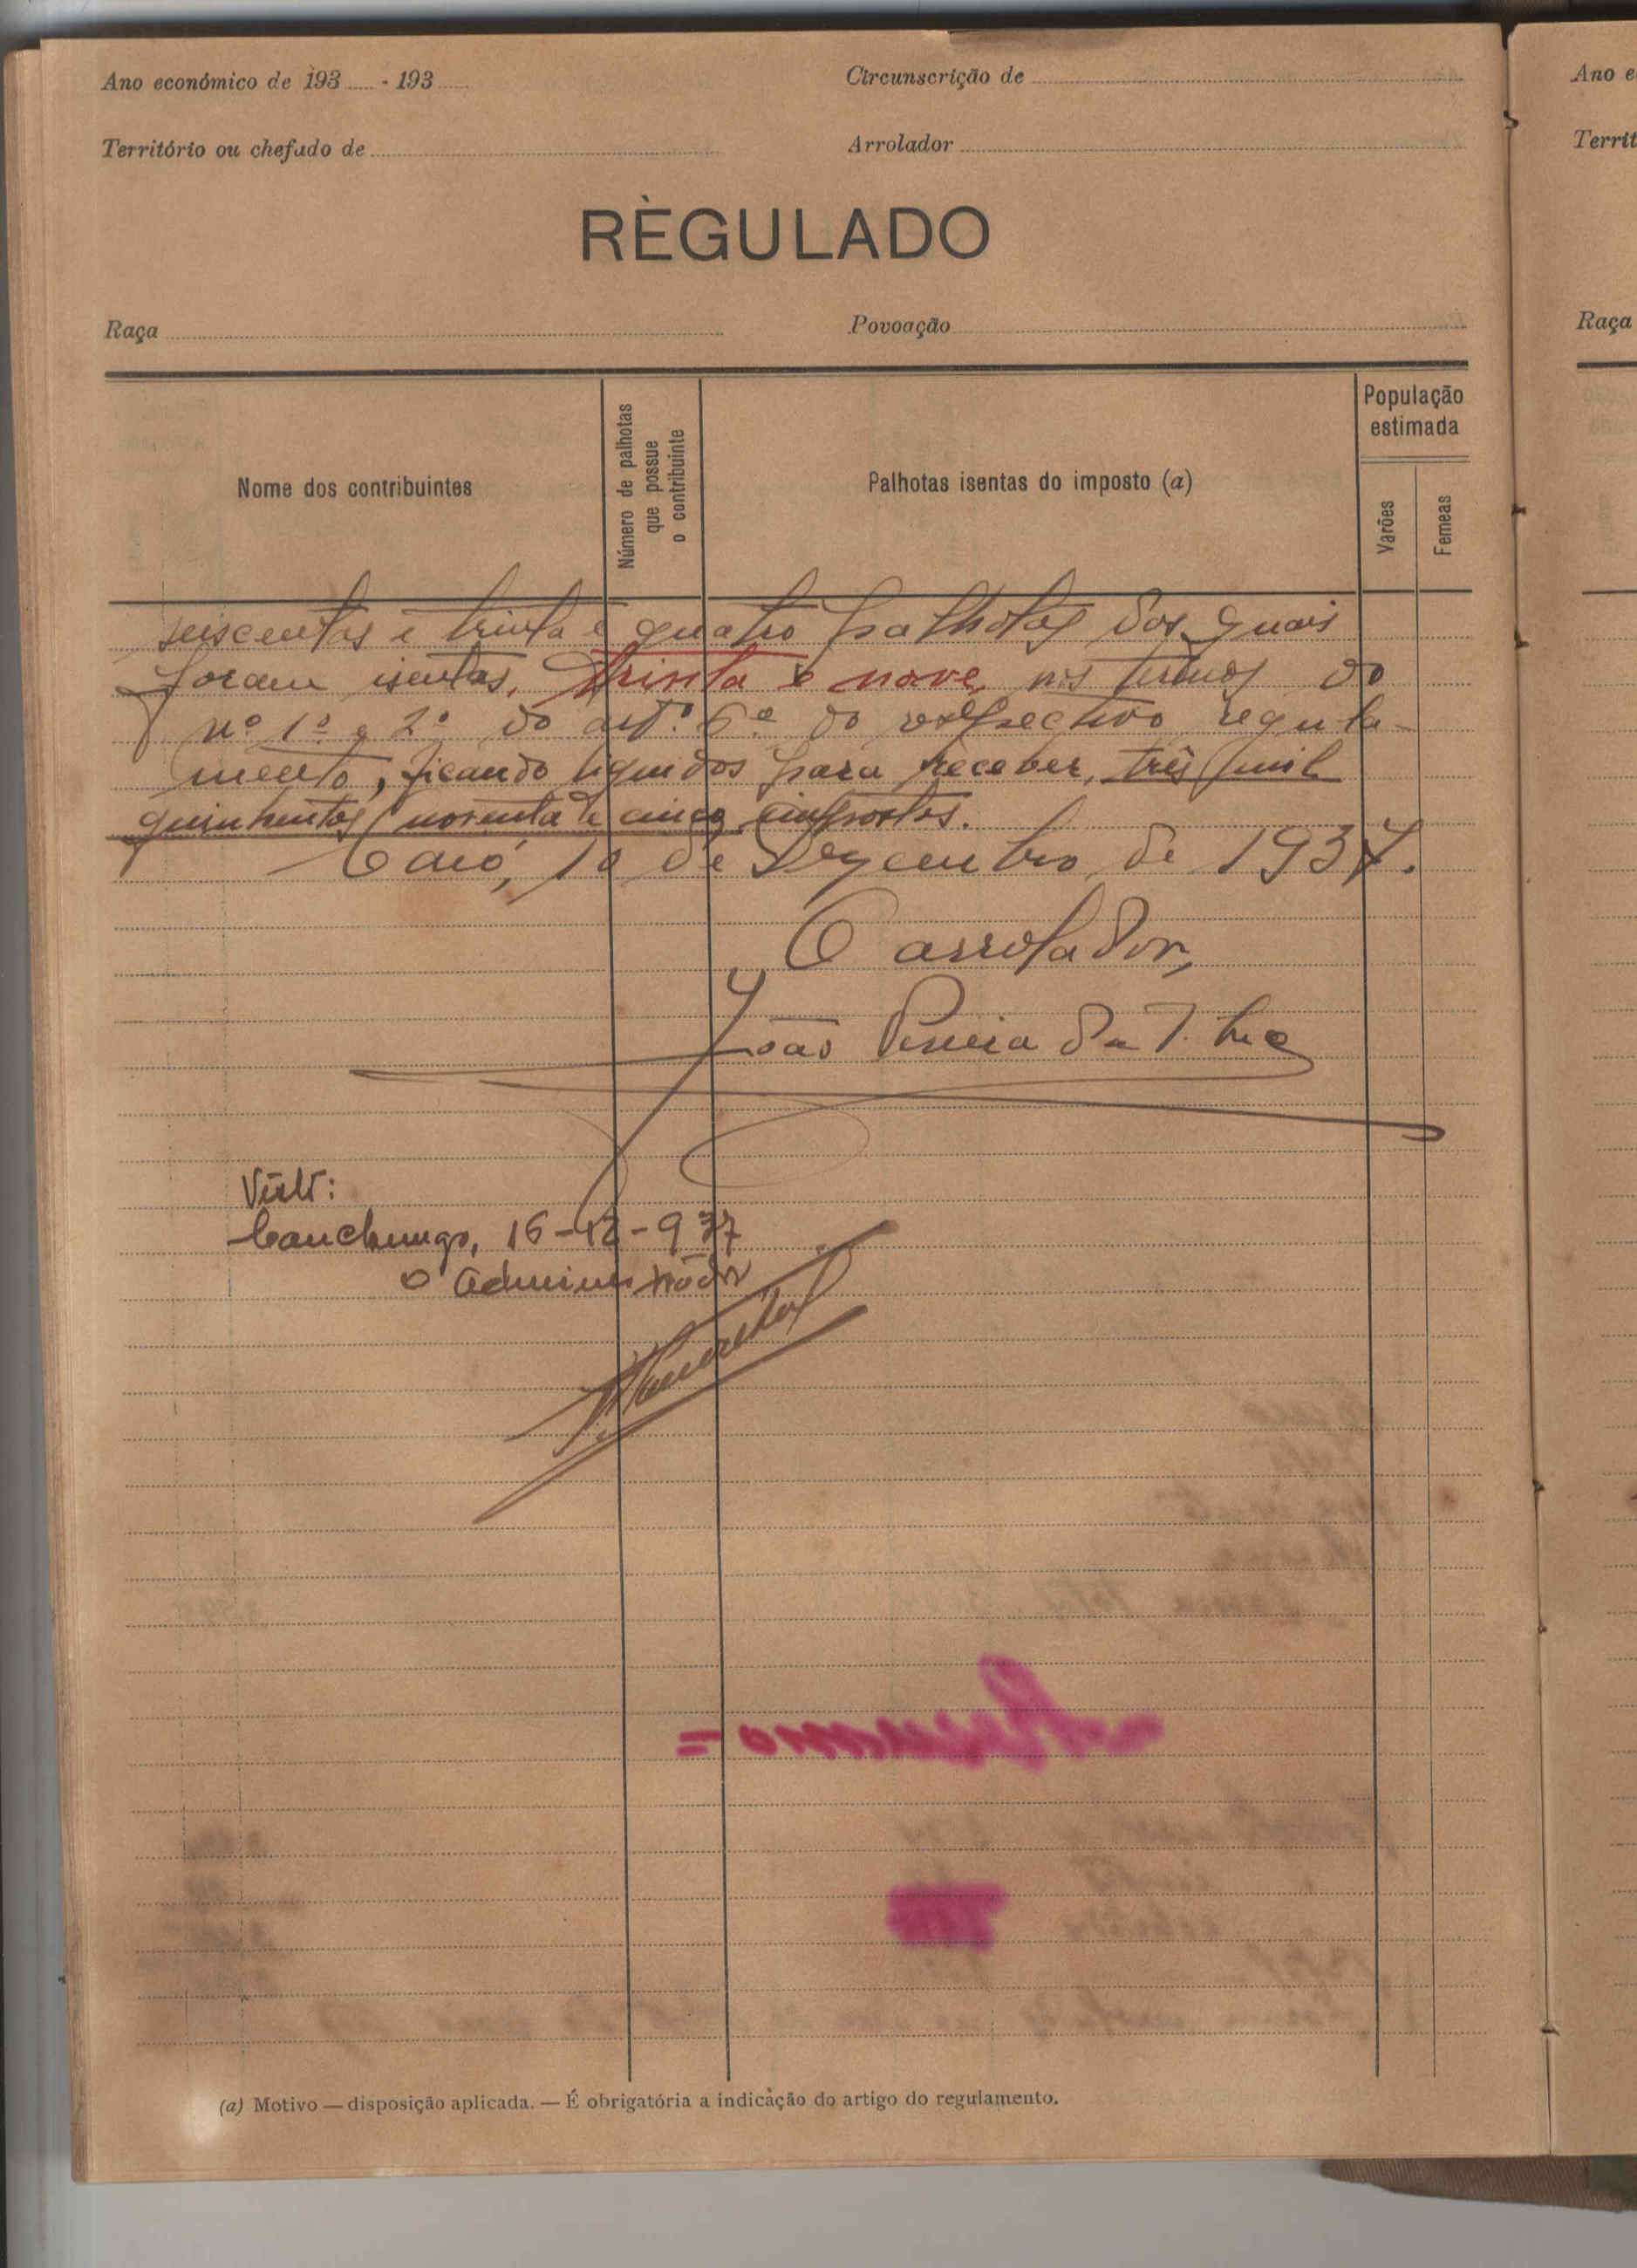 Ano económico de 193 - 193
Circunscrição de
Território ou chefado de
Arrolador
RÈGULADO
Raça
Povoação
Nome dos contribuintes
Número de palhotas que possue o contribuinte
Palhotas isentas do imposto (a)
População estimada
Varões
Femeas
seiscentas e trinta e quatro palhotas dos quais
foram isentas, trinta e nove, nos termos do
nº 1º e 2º do artº 6º do respectivo regula-
mento, ficando liquidos para receber, três mil
quinhentos noventa e cinco impostos.
Caió, 10 de Dezembro de 1937.
O arrolador,
João Pereira da
Visto:
Canchungo, 16-12-937
O Administrador
(a) Motivo — disposição aplicada. — É obrigatória a indicação do artigo do regulamento.
Ano e
Territ
Raça